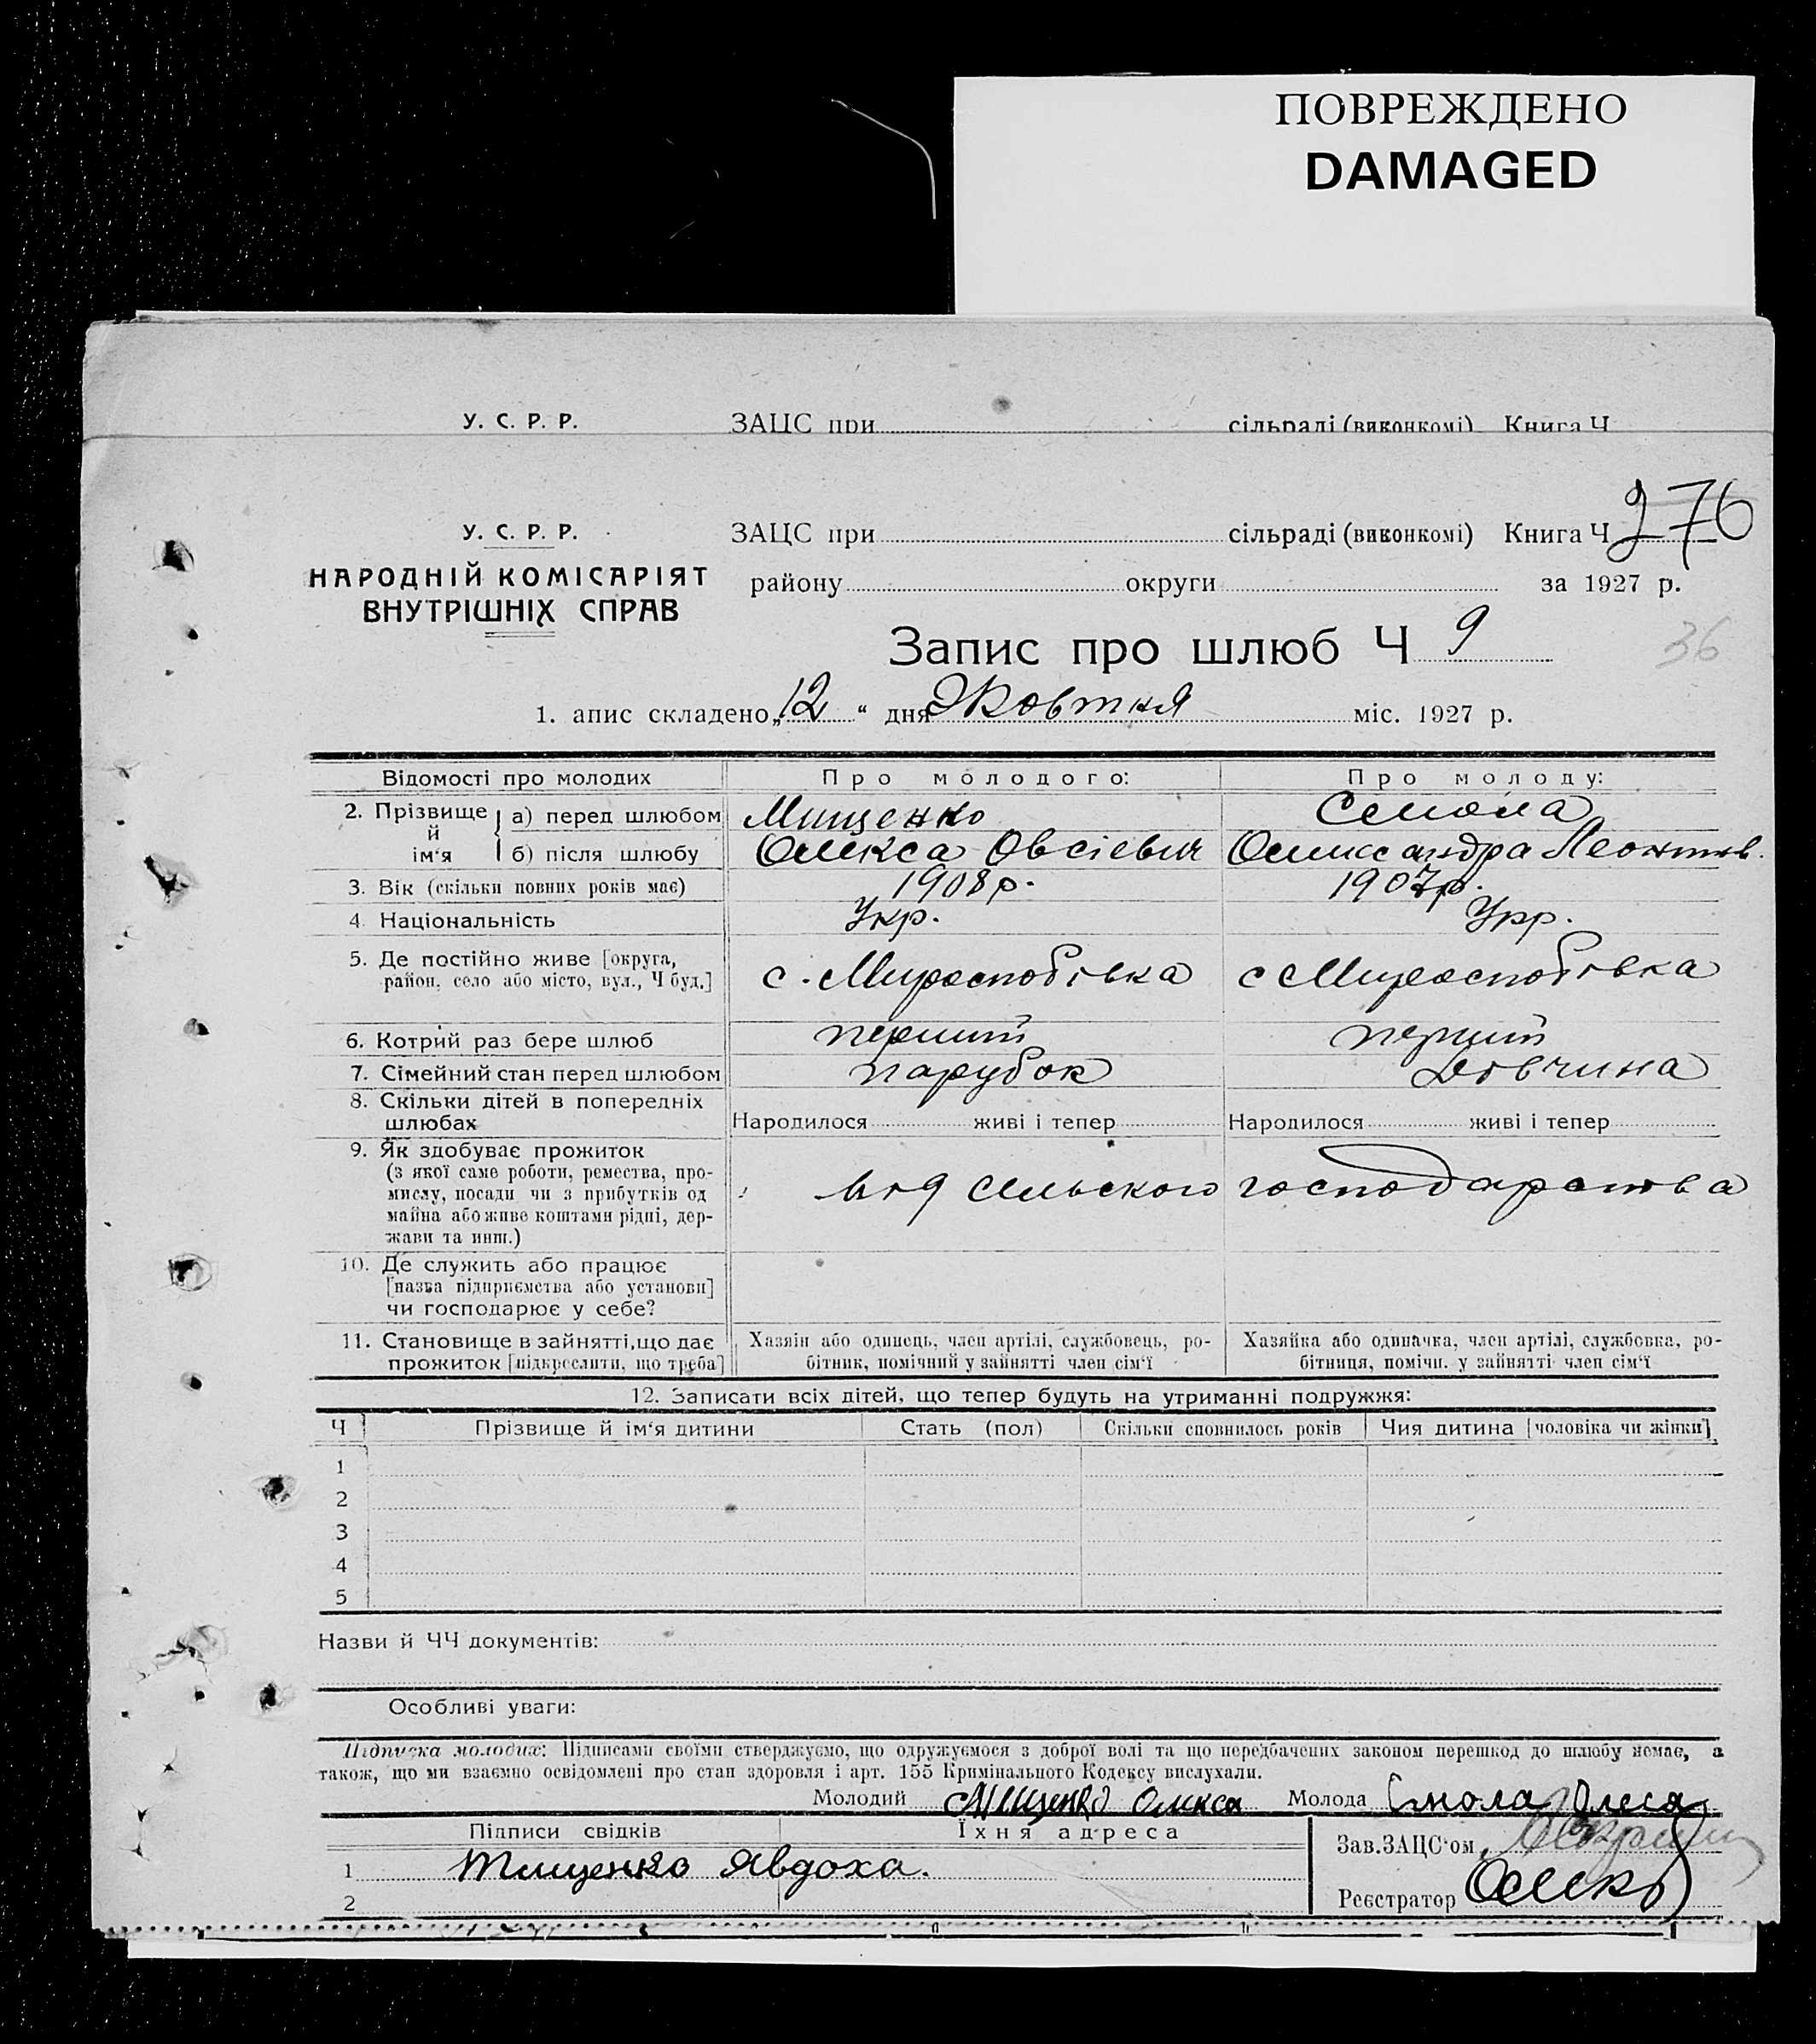 ПОВРЕЖДЕНО
DAMAGED
У. С. Р. Р. ЗАЦС при сільраді (виконкомі) Книга Ч
У. С. Р. Р. ЗАЦС при сільраді (виконкомі) Книга Ч 276
НАРОДНІЙ КОМІСАРІЯТ
ВНУТРІШНІХ СПРАВ
району округи за 1927 р.
Запис про шлюб Ч 9
36
1. апис складено „12“ дня Жовтня міс. 1927 р.
Відомості про молодих Про молодого: Про молоду:
2. Прізвище й ім‘я а) перед шлюбом Мищенко Смола
б) після шлюбу Олекса Овсієвич Олександра Леонтїв.
3. Вік (скільки повних років має) 1908 р. 1907 р.
4. Національність Укр. Укр.
5. Де постійно живе [округа,
район, село або місто, вул., Ч буд.] с. Миропобівка с
6. Котрий раз бере шлюб перший перший
7. Сімейний стан перед шлюбом парубок дівчина
8. Скільки дітей в попередніх
шлюбах Народилося живі і тепер Народилося живі і тепер
9. Як здобуває прожиток
(з якої саме роботи, ремества, про-
мислу, посади чи з прибутків од
майна або живе коштами рідні, дер-
жави та инш.)
від сільского господарства
10. Де служить або працює
[назва підприємства або установи]
чи господарює у себе?
11. Становище в зайнятті, що дає
прожиток [підкреслити, що треба]
Хазяїн або одинець, член артілі, службовець, ро-
бітник, помічний у зайнятті член сім‘ї
Хазяйка або одиначка, член артілі, службовка, ро-
бітниця, помічн. у зайнятті член сім‘ї
12. Записати всіх дітей, що тепер будуть на утриманні подружжя:
Ч Прізвище й ім‘я дитини Стать (пол) Скільки сповнилось років Чия дитина [чоловіка чи жінки]
1
2
3
4
5
Назви й ЧЧ документів:
Особливі уваги:
Підписка молодих: Підписами своїми стверджуємо, що одружуємося з доброї волі та що передбачених законом перешкод до шлюбу немає, а
також, що ми взаємно освідомлені про стан здоровля і арт. 155 Кримінального Кодексу вислухали.
Молодий Мищенко Олекса Молода Смола Олеса
Підписи свідків Їхня адреса
Зав. ЗАЦС‘ом
1 Тищенко Явдоха.
Реєстратор
2